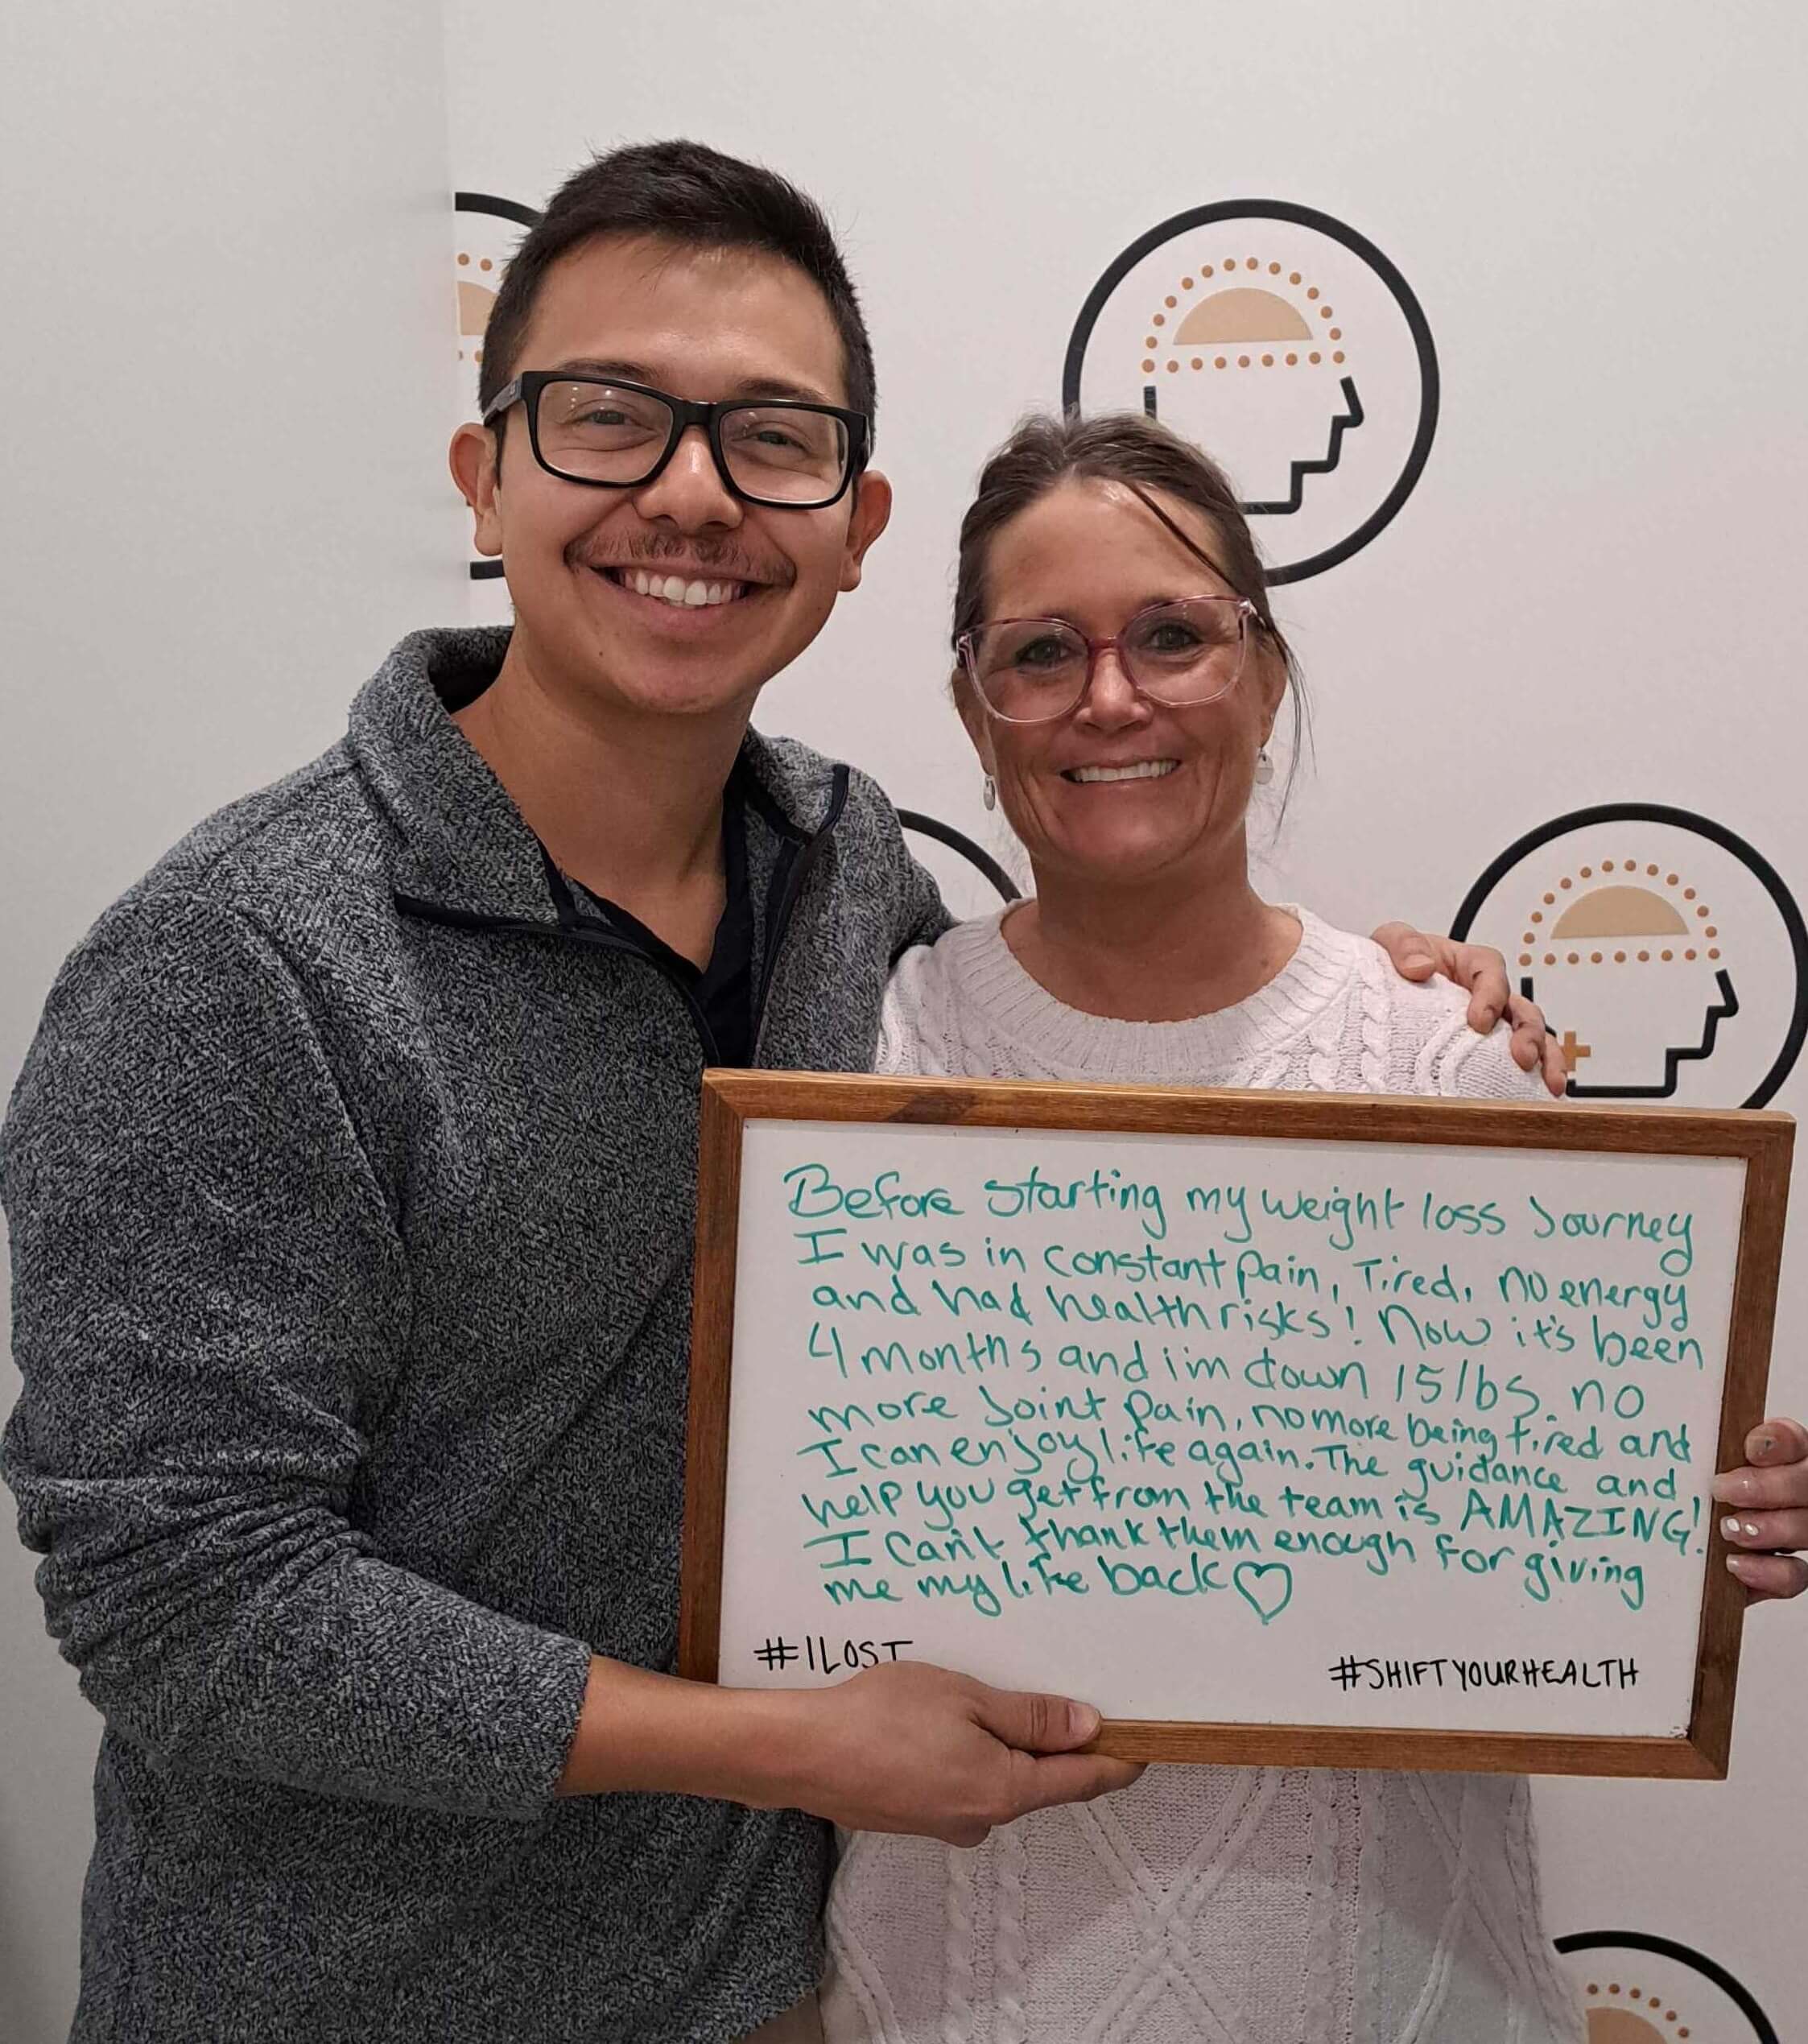 Before starting my weight loss Journey
I was in constant Pain, Tired, no energy
and had health risks! Now it's been
4 months and i'm down 15lbs. no
more Joint Pain, no more being tired and
I can enjoy life again. The guidance and
help you get from the team is AMAZING!
I can't thank them enough for giving
me my life back♡
#ILOST
#SHIFTYOURHEALTH